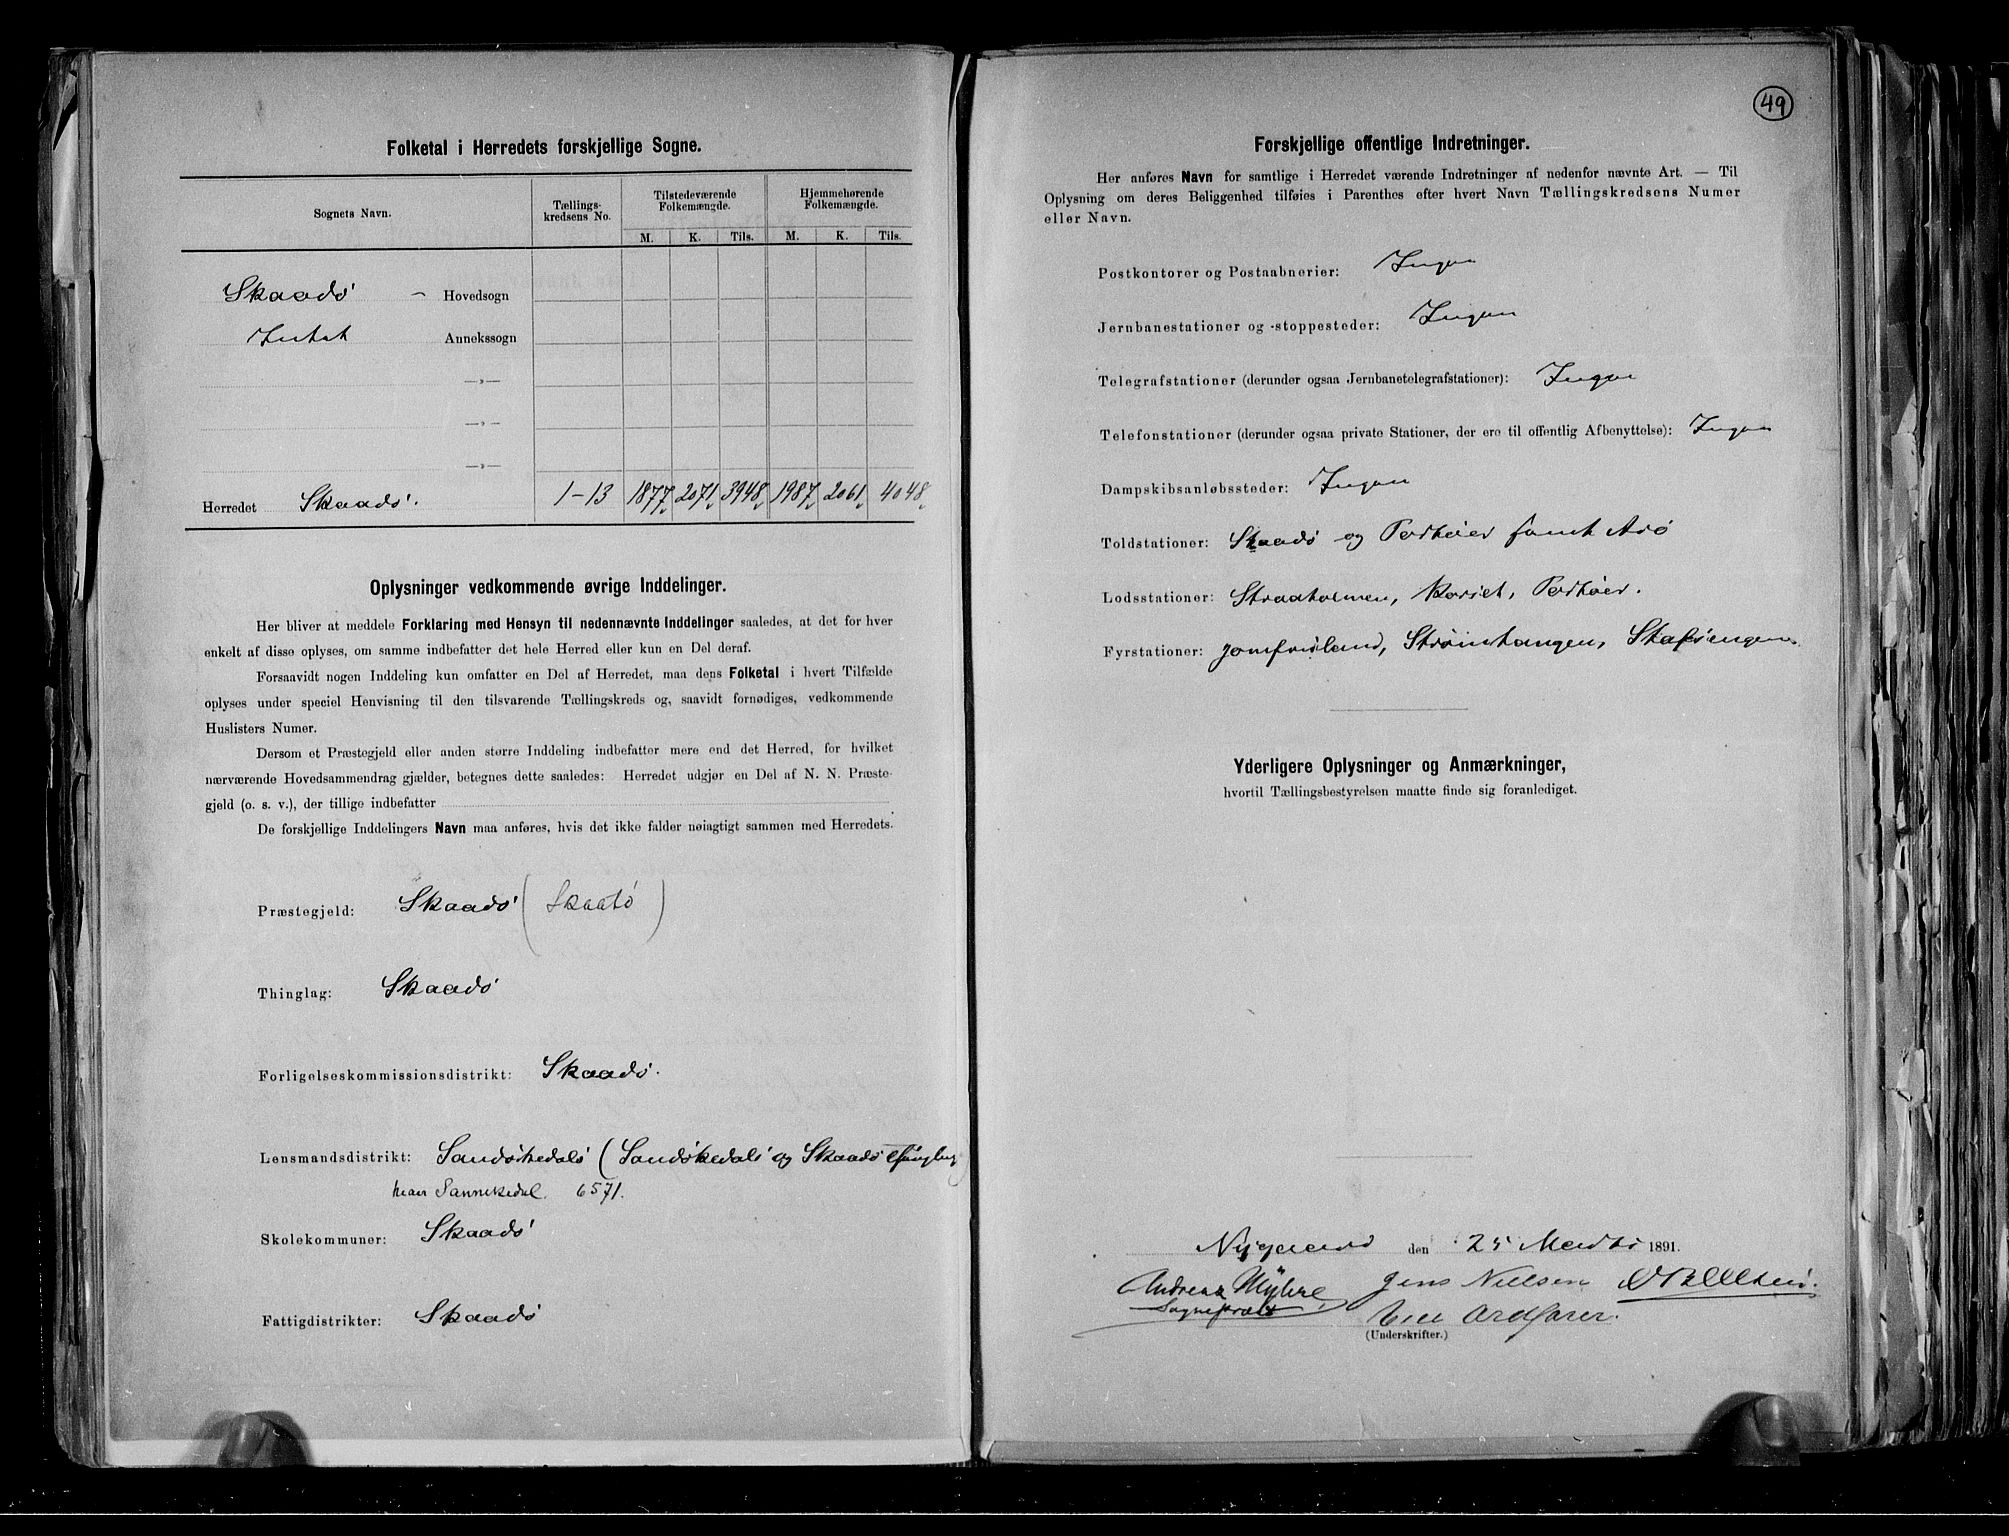 Folketal i Herredets forskjellige Sogne.
Sognets Navn. Tællings- kredsens No. Tilstedeværende Folkemængde. Hjemmehørende Folkemængde.
M. K. Tils. M. K. Tils.
Skaadø – Hovedsogn
Intet Annekssogn
—»—
—»—
—»—
Herredet Skaadø. 1-13 1877 2071 3948 1987 2061 4048
Oplysninger vedkommende øvrige Inddelinger.
Her bliver at meddele Forklaring med Hensyn til nedennævnte Inddelinger saaledes, at det for hver
enkelt af disse oplyses, om samme indbefatter det hele Herred eller kun en Del deraf.
Forsaavidt nogen Inddeling kun omfatter en Del af Herredet, maa dens Folketal i hvert Tilfælde
oplyses under speciel Henvisning til den tilsvarende Tællingskreds og, saavidt fornødiges, vedkommende
Huslisters Numer.
Dersom et Præstegjeld eller anden større Inddeling indbefatter mere end det Herred, for hvilket
nærværende Hovedsammendrag gjælder, betegnes dette saaledes: Herredet udgjør en Del af N. N. Præste-
gjeld (o. s. v.), der tillige indbefatter
De forskjellige Inddelingers Navn maa anføres, hvis det ikke falder nøiagtigt sammen med Herredets.
Præstegjeld: Skaadø (Skaatø)
Thinglag: Skaadø
Forligelseskommissionsdistrikt: Skaadø.
Lensmandsdistrikt: Sandøkedals (Sandøkedals og Skaadø Thinglag)
Sannikedal. 6571.
Skolekommuner: Skaadø
Fattigdistrikter: Skaadø
49
Forskjellige offentlige Indretninger.
Her anføres Navn for samtlige i Herredet værende Indretninger af nedenfor nævnte Art. — Til
Oplysning om deres Beliggenhed tilføies i Parenthes efter hvert Navn Tællingskredsens Numer
eller Navn.
Postkontorer og Postaabnerier: Ingen
Jernbanestationer og -stoppesteder: Ingen
Telegrafstationer (derunder ogsaa Jernbanetelegrafstationer): Ingen
Telefonstationer (derunder ogsaa private Stationer, der ere til offentlig Afbenyttelse): Ingen
Dampskibsanløbssteder: Ingen
Toldstationer: Skaadø og Portøier samt Arø
Lodsstationer: Straaholmen, Korset, Portøier.
Fyrstationer: Jomfruland, Strømtangen, Stafsengen
Yderligere Oplysninger og Anmærkninger,
hvortil Tællingsbestyrelsen maatte finde sig foranlediget.
den 25 Martsi 1891.
Andreas Myhre Jens Nielsen
Sognepræst
(Underskrifter.)